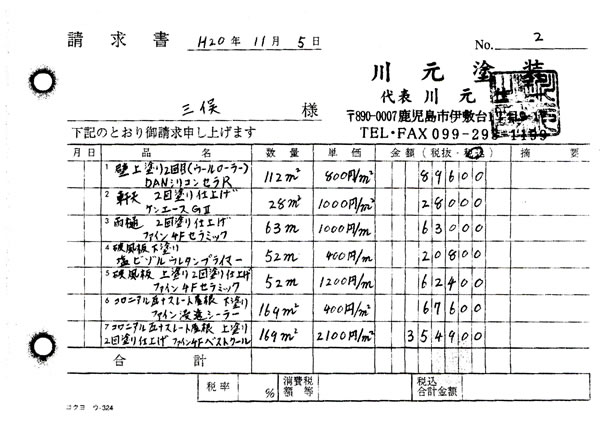 請求書 H20年11月5日 No. 2
川元塗装
代表 川元
三俣 様
〒890-0007鹿児島市伊敷台1丁目
下記のとおり御請求申し上げます
TEL・FAX 099-298-1109
月日 品名 数量 単価 金額(税抜・税込) 摘要
1 壁上塗り2回目(ウールローラー)
DANシリコンセラR 112m² 800円/m² 89600
2 軒天 2回塗り仕上げ
ケンエースGⅡ 28m² 1000円/m² 28000
3 雨樋 2回塗り仕上げ
ファイン4Fセラミック 63m 1000円/m 63000
4 破風板下塗り
塩ビゾルウレタンプライマー 52m 400円/m 20800
5 破風板 上塗り2回塗り仕上げ
ファイン4Fセラミック 52m 1200円/m 62400
6 コロニアル瓦+スレート屋根 下塗り
ファイン浸透シーラー 169m² 400円/m² 67600
7 コロニアル瓦+スレート屋根 上塗り
2回塗り仕上げ ファイン4Fベストクール 169m² 2100円/m² 354900
合計
税率 % 消費税額等 税込合計金額
コクヨ ウ-324